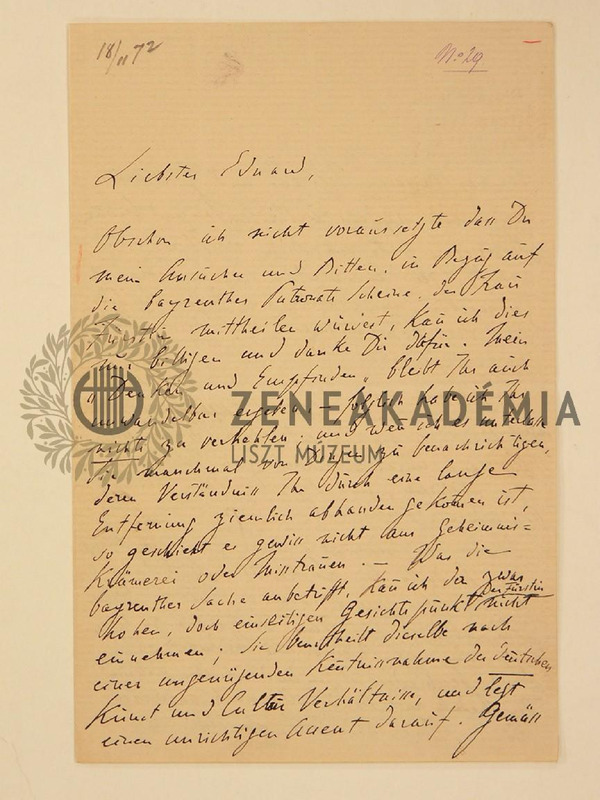 18/11 72
No 29
Liebster Eduard,
Obschon ich nicht voraussetzte dass Du
mein Ansuchen und Bitten, in Bezug auf
die bayreuther Patronats Scheine, der Frau
Fürstin mittheilen würdest, kan̄ ich dies
nur billigen und danke Dir dafür. Mein
„Denken und Empfinden" bleibt Ihr auch
unwandelbar ergeben; – folglich habe ich Ihr
nichts zu verhehlen; und wen̄ ich es unterlasse
Sie manchmal von Dingen zu benachrichtigen,
deren Verständniss Ihr durch eine lange
Entfernung ziemlich abhanden gekom̄en ist,
so geschieht es gewiss nicht aus Geheimniss-
Krämerei oder Misstrauen. – Was die
bayreuther Sache anbetrifft, kan̄ ich den zwar
hohen, doch einseitigen Gesichtspunkt der Fürstin nicht
einnehmen; Sie beurtheilt dieselbe nach
einer ungenügenden Kentnissnahme der deutschen
Kunst und Cultur Verhältnisse, und legt
einen unrichtigen Accent darauf. Gemäss
ZENEAKADÉMIA
LISZT MÚZEUM